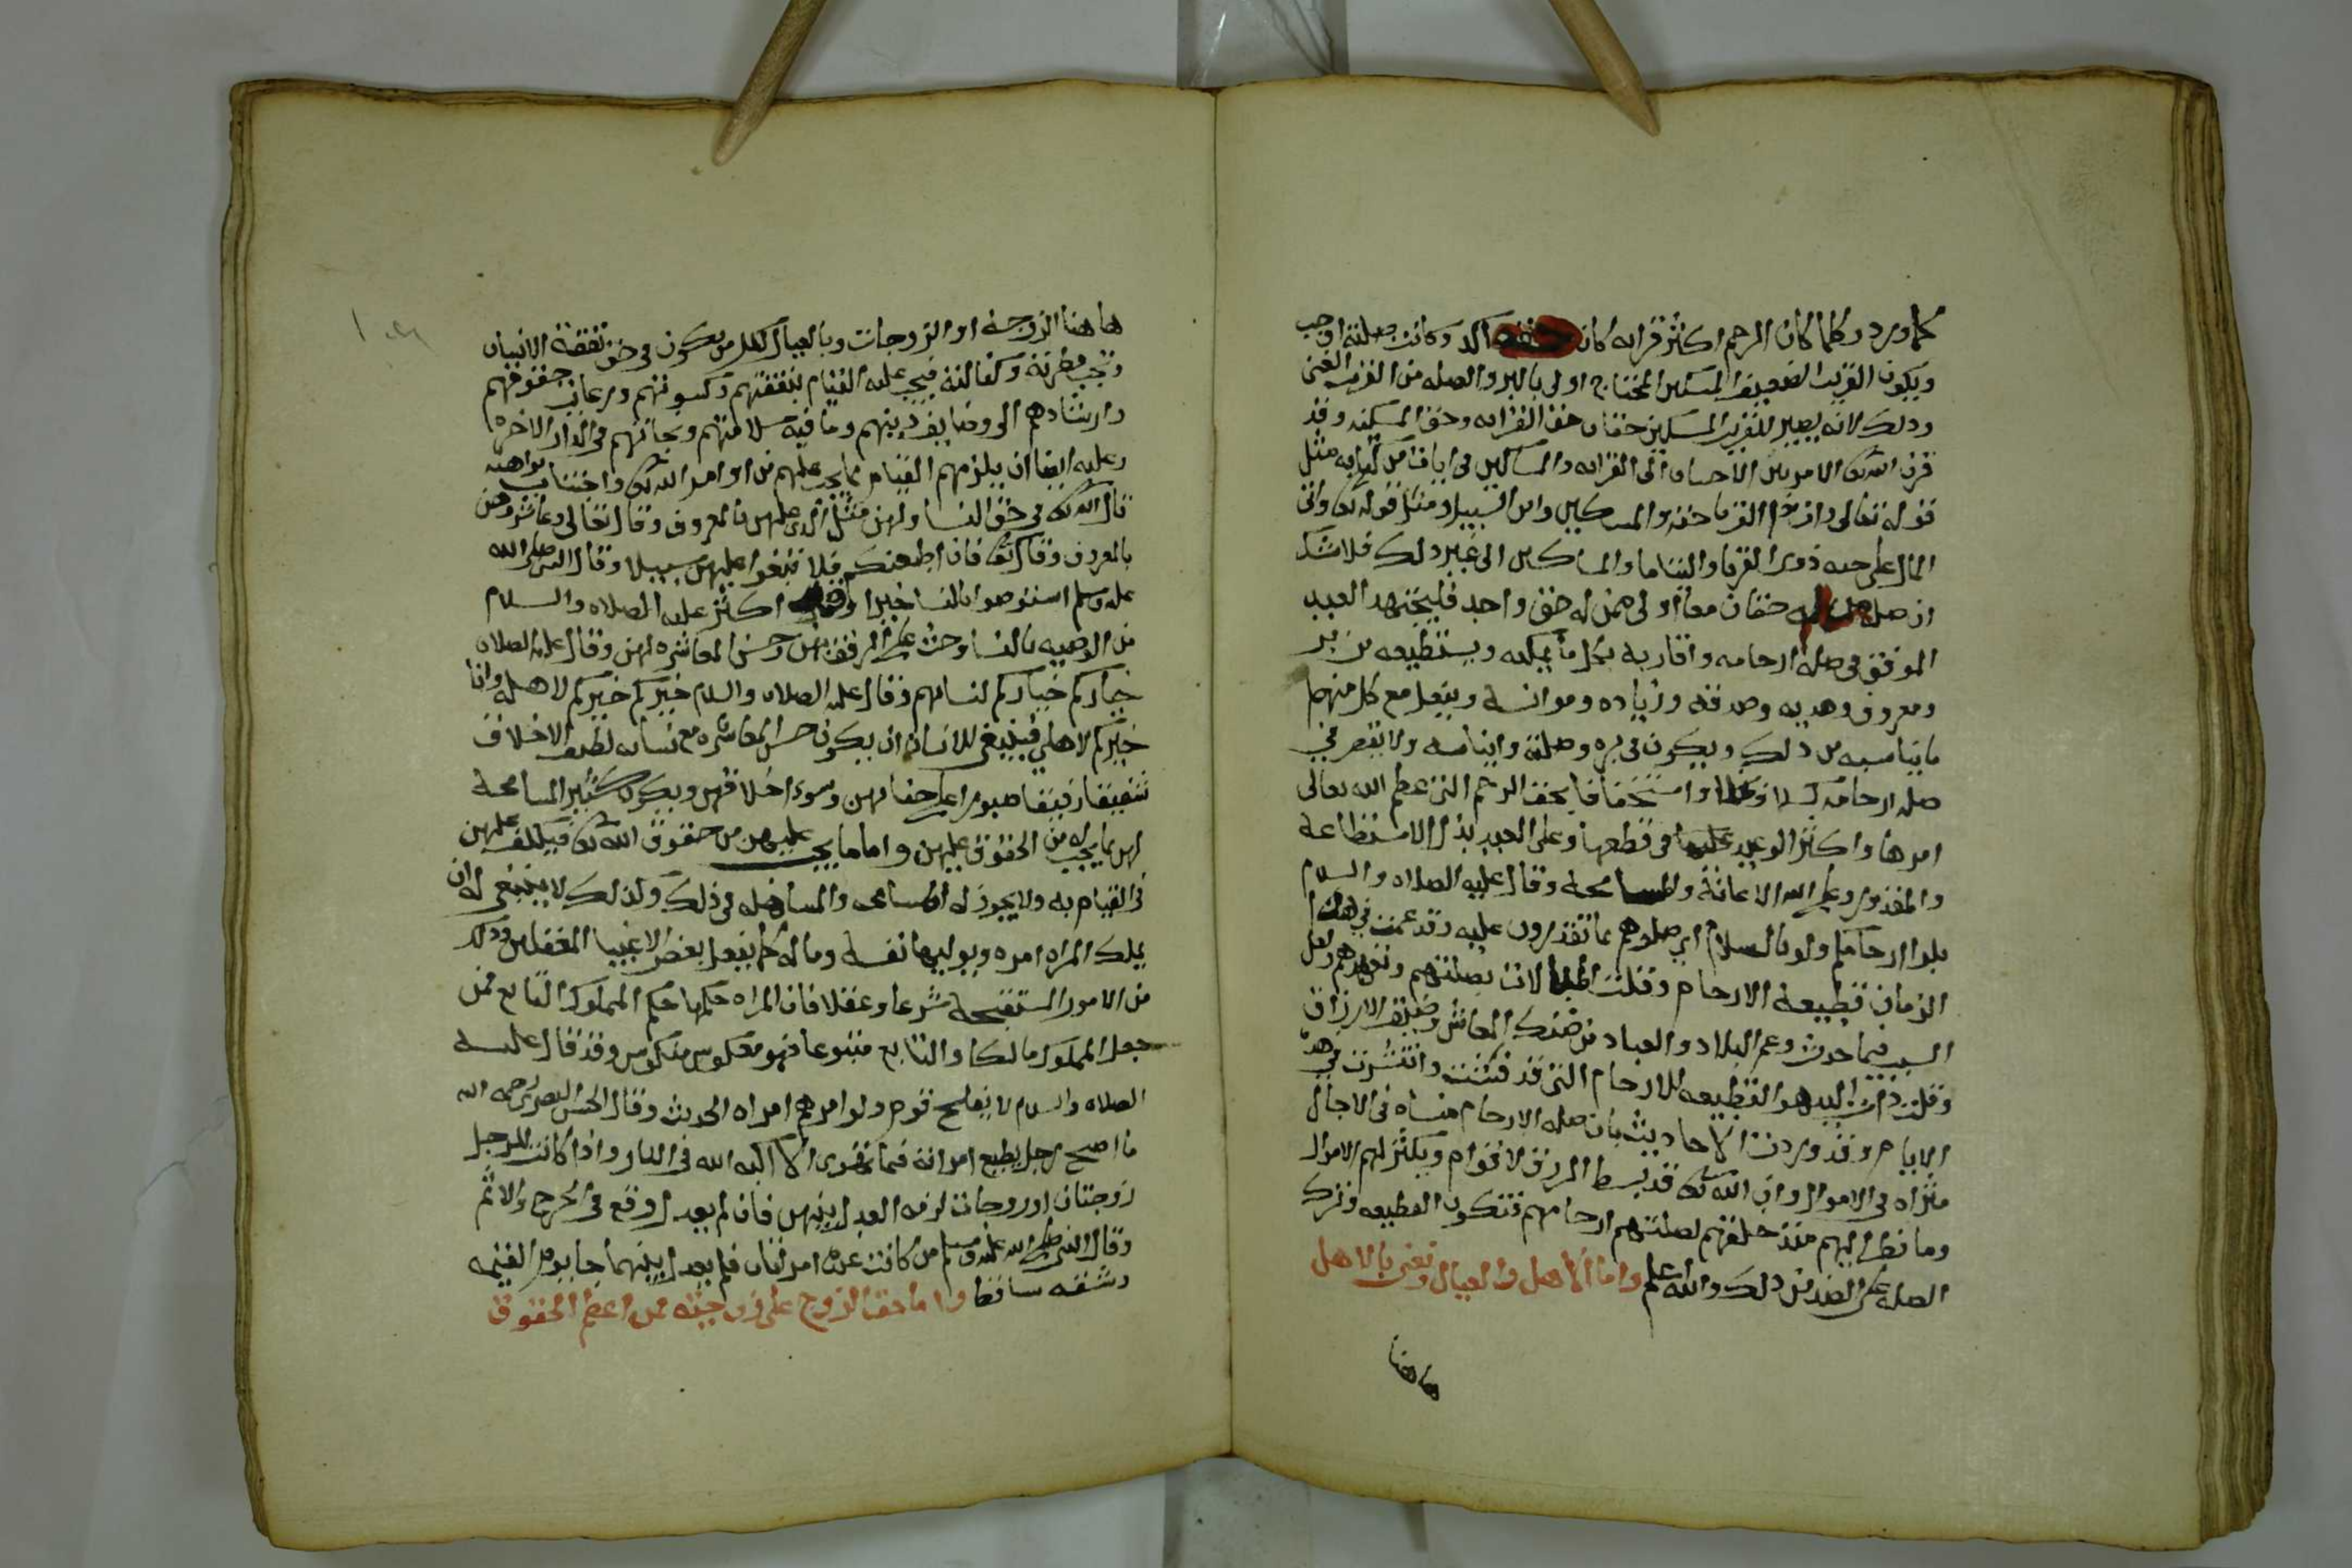 كما ورد وكلما كان الرحم اكثر قرابه كان حقه اكد وكانت صلته اوجب
ويكون القريب الضعيف المسكين المحتاج اولى بالبر والصله من القريب الغني
وذلك لانه يصير للقريب المسكين حقان حق القرابه وحق المسكنه وقد
قرن الله تعالى الامر بين الاحسان الى القرابه والمساكين في ايات من كتابه مثل
قوله تعالى وات ذا القربا حقه والمسكين وابن السبيل ومثل قوله تعالى واتى
المال على حبه ذوى القربا واليتاما والمساكين الى غير ذلك فلا شك
ان صله من له حقان معا اولى ممن له حق واحد فليجتهد العبد
الموفق في صله ارحامه واقاربه بكل ما يمكنه ويستطيعه من بر
ومعروف وهديه وصدقه وزياده وموانسة ويفعل مع كل منهم
ما يناسبه من ذلك ويكون في بره وصلته وايناسه ولا يقصر في
صله ارحامه كسلا وبخلا واستخفافا بحق الرحم التي عظم الله تعالى
امرها واكثر الوعيد في قطعها وعلى العبد بذل الاستطاعة
والمقدور وعلى الله الاعانة والمسامحة وقال عليه الصلاه والسلام
بلوا ارحامكم ولو بالسلام اي صلوهم بما تقدرون عليه وقد عمت في هذا
الزمان قطيعة الارحام وقلت المبالات بصلتهم وتعهدهم ولعل
السبب فيما حدث وعم البلاد والعباد من ضنك المعاش وضيق الارزاق
وقلت ذات اليد هو القطيعه للارحام التي قد فشت وانتشرت في هذه
الايام وقد وردت الاحاديث بان صله الارحام منساه في الاجال
مثراه في الاموال وان الله تعالى قد يبسط الرزق لاقوام ويكثر لهم الاموال
وما نظر اليهم منذ خلقهم لصلتهم ارحامهم فتكون القطيعه وترك
الصله على الضد من ذلك والله اعلم واما الاهل والعيال ونعني بالاهل
هاهنا
هاهنا الزوجة او الزوجات وبالعيال كل من يكون في نفقة الانسان
وتحت نظرته وكفالته فيجب عليه القيام بنفقتهم وكسوتهم ومراعات حقوقهم
وارشادهم الى وضايف دينهم وما فيه سلامتهم ونجاتهم في الدار الاخره
وعليه ايضا ان يلزمهم القيام بما يجب عليهم من اوامر الله تعالى واجتناب نواهيه
قال الله تعالى في حق النسا ولهن مثل الذي عليهن بالمعروف وقال تعالى وعاشروهن
بالمعروف وقال تعالى فان اطعنكم فلا تبغوا عليهن سبيلا وقال النبي صلى الله
عليه وسلم استوصوا بالنسا خيرا وقد اكثر عليه الصلاه والسلام
من الوصيه بالنسا وحث على الرفق بهن وحسن المعاشره لهن وقال عليه الصلاه
خياركم خياركم لنسائهم وقال عليه الصلاه والسلام خيركم خيركم لاهله وانا
خيركم لاهلي فينبغي للانسان ان يكون حسن المعاشره مع نسائه لطيف الاخلاق
شفيقا رفيقا صبورا على جفائهن وسوء اخلاقهن ويكون كثير المسامحة
لهن بما يجب له من الحقوق عليهن واما ما يجب عليهن من حقوق الله تعالى فيكلفهن
في القيام به ولا يجوز له المسامحه والمساهله في ذلك وكذلك لا ينبغي له ان
يملك المراه امره ويوليها نفسه وماله كما يفعل بعض الاغبيا المغفلين وذلك
من الامور المستقبحه شرعا وعقلا فان المراه حكمها حكم المملوك التابع فمن
جعل المملوك مالكا والتابع متبوعا فهو معكوس منكوس وقد قال عليه
الصلاه والسلام لا يفلح قوم ولوا امرهم امراه الحديث وقال الحسن البصري رحمه الله
ما اصبح رجل يطيع امراته فيما تهوى الا اكبه الله في النار واذا كانت للرجل
زوجتان او زوجات لزمه العدل بينهن فان لم يعدل وقع في الحرج والاثم
وقال النبي صلى الله عليه وسلم من كانت عنده امراتان فلم يعدل بينهما جا يوم القيمه
وشقه ساقط واما حق الزوج على زوجته فمن اعظم الحقوق